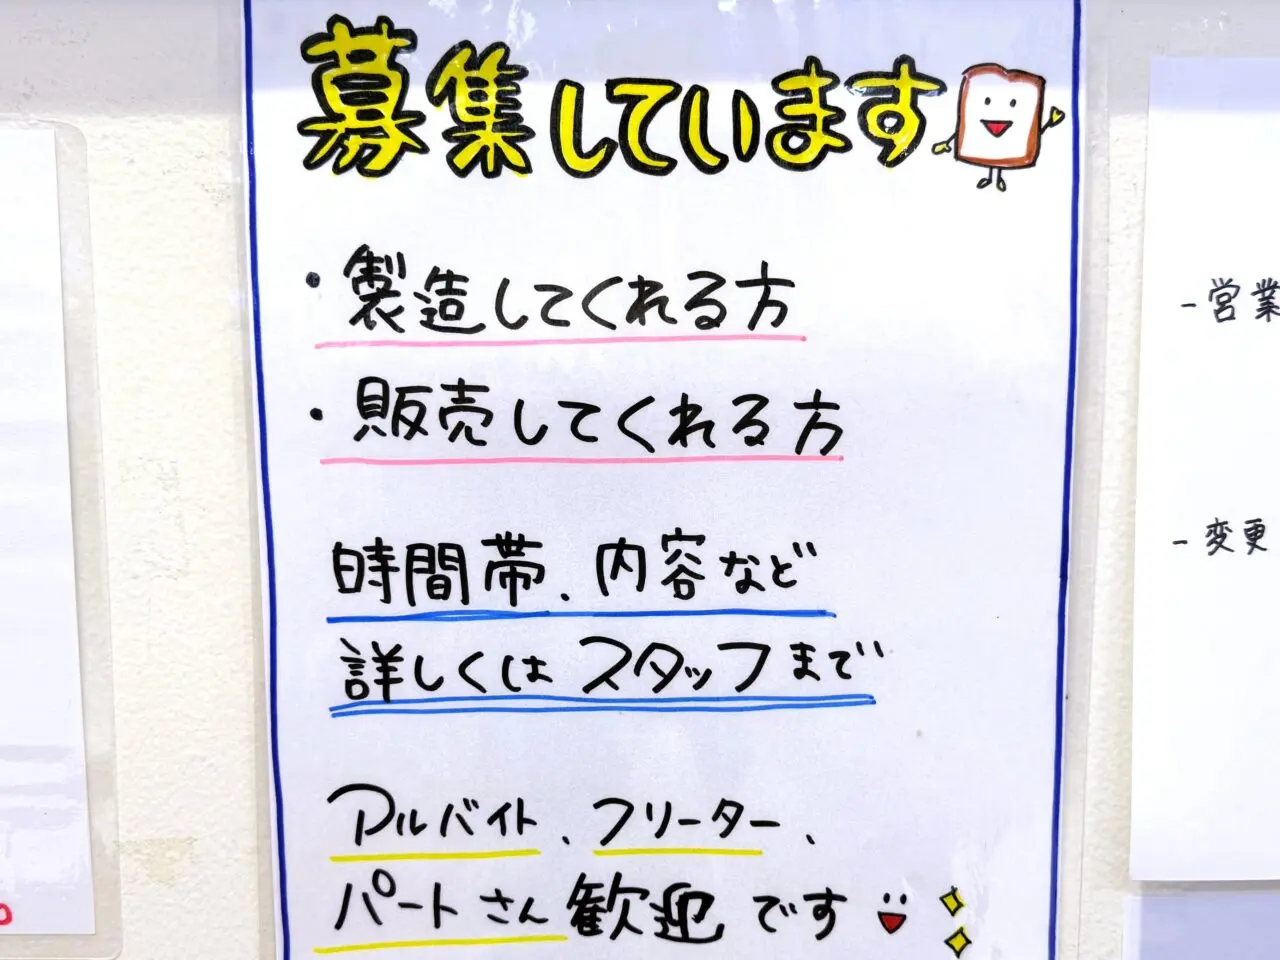 募集しています
・製造してくれる方
・販売してくれる方
時間帯、内容など
詳しくはスタッフまで
アルバイト、フリーター、
パートさん歓迎です
- 営業
- 変更
0